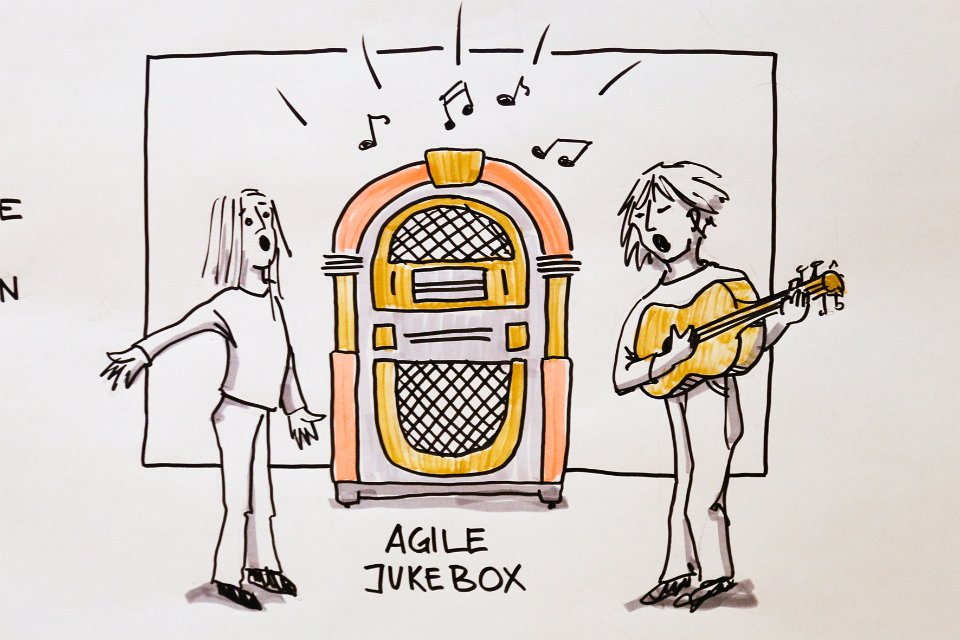 E
N
AGILE
JUKEBOX